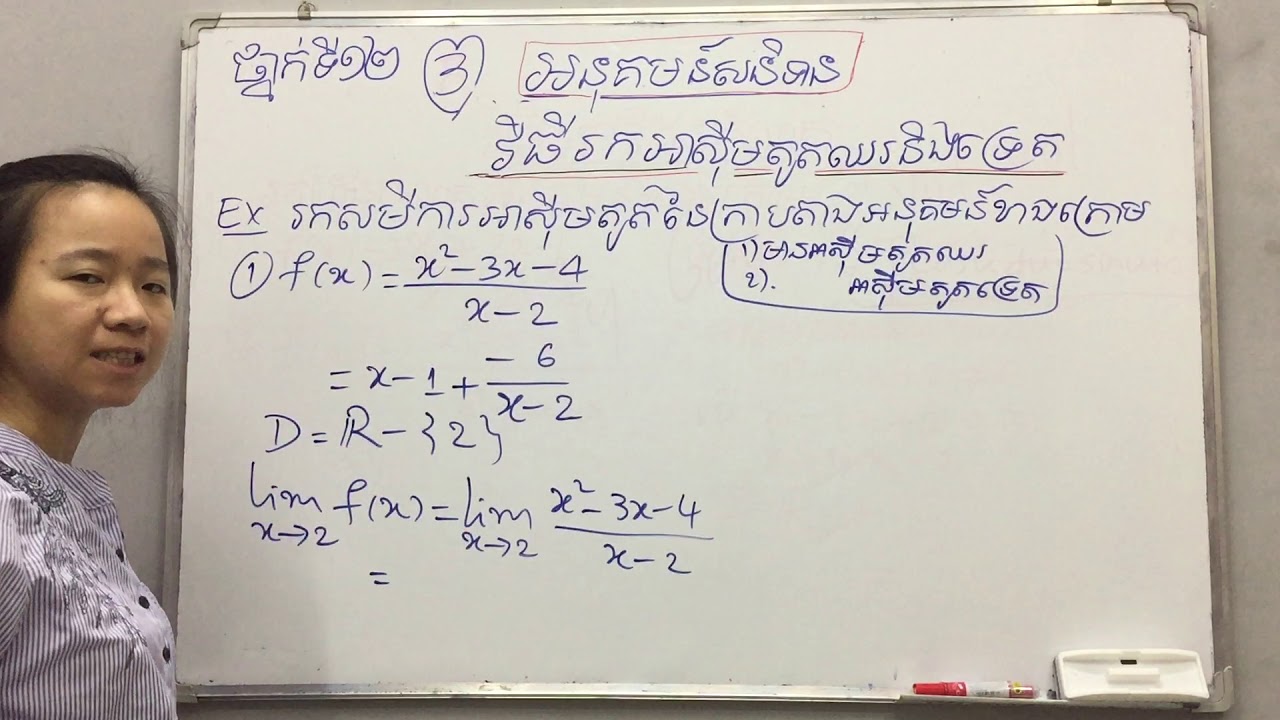 ថ្នាក់ទី១២ ៣ អនុគមន៍សនិទាន
វិធីរកអាស៊ីមតូតឈរនិងទ្រេត
Ex រកសមីការអាស៊ីមតូតនៃក្រាបតាងអនុគមន៍ខាងក្រោម
① f(x) = (x² - 3x - 4)/(x - 2)
1) មានអាស៊ីមតូតឈរ
2). អាស៊ីមតូតទ្រេត
= x - 1 + (- 6)/(x - 2)
D = ℝ - {2}
lim x→2 f(x) = lim x→2 (x² - 3x - 4)/(x - 2)
=